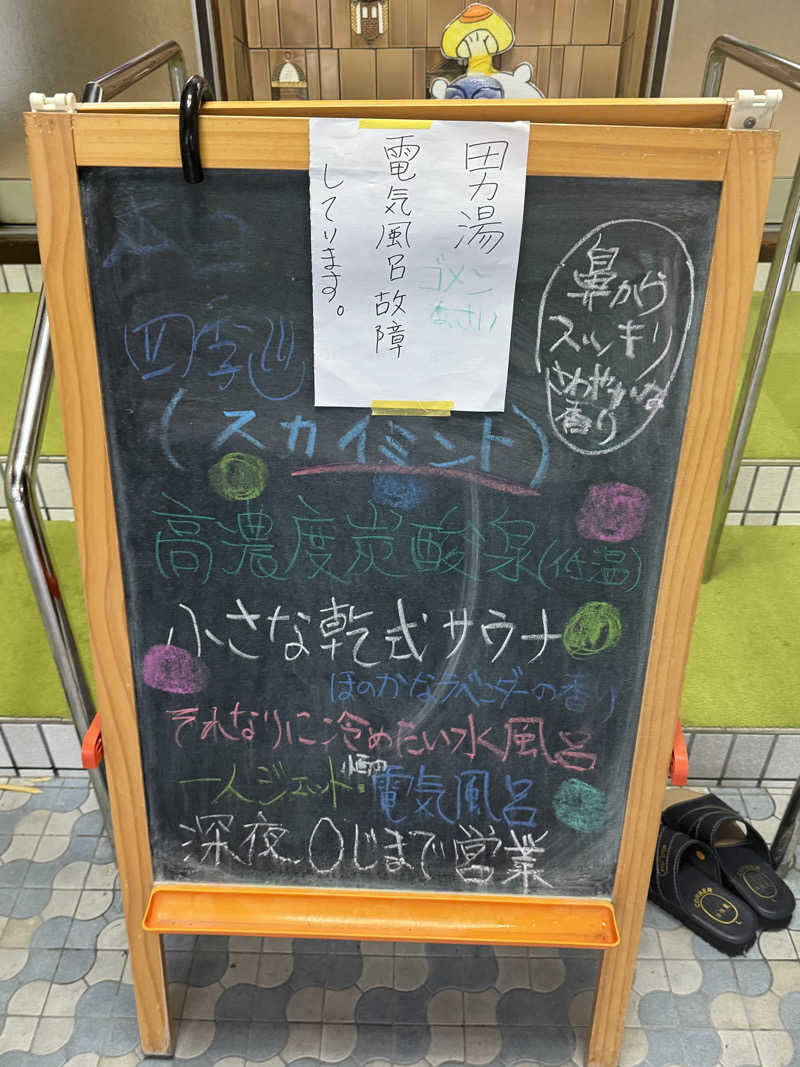 男湯
ゴメン
なさい
電気風呂故障
しています。
鼻から
スッキリ
さわやかな
香り
四季
(スカイミント)
高濃度炭酸泉(低温)
小さな乾式サウナ
ほのかなラベンダーの香り
それなりに冷めたい水風呂
一人ジェット・
電気風呂
深夜0じまで営業
CORNER